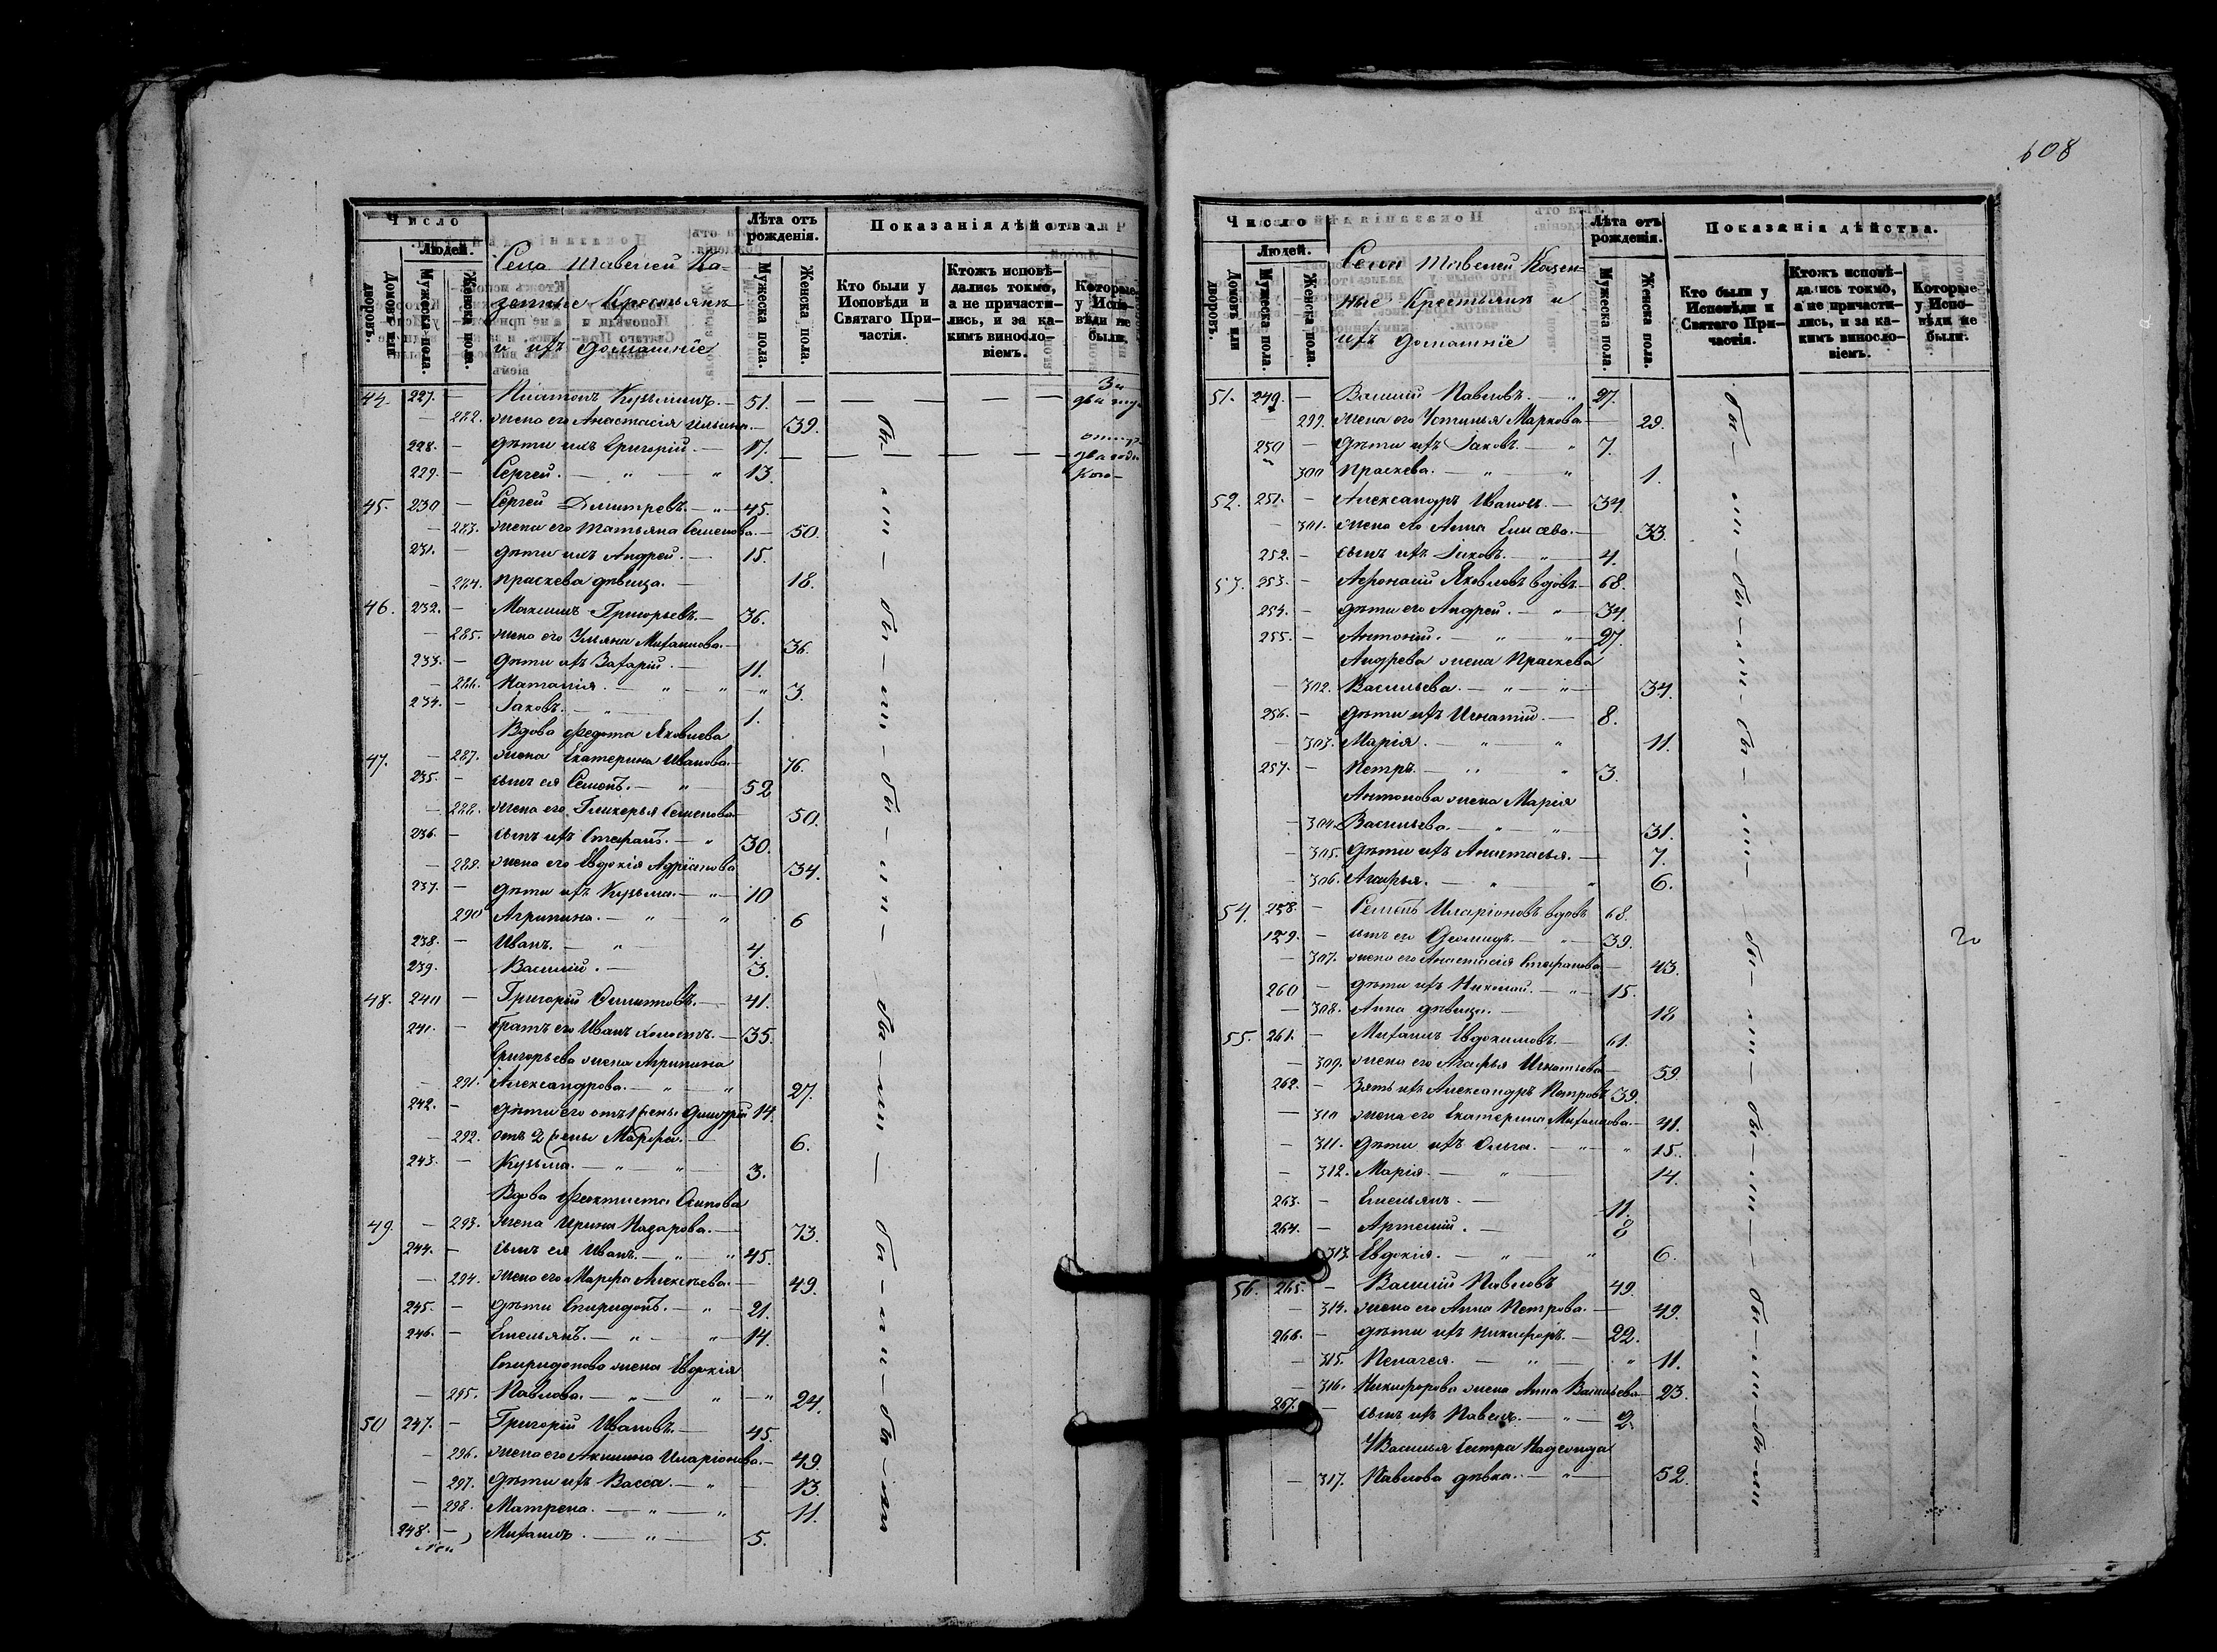 Число
Людей.
Домовъ или дворовъ.
Мужеска пола.
Женска пола.
Села Тавелей Ка-
зенные Крестьянъ
и ихъ домашніе
Лѣта отъ рожденія.
Мужеска пола.
Женска пола.
Показанія дѣйства.
Кто были у Исповѣди и Святаго При-частія.
Ктожъ исповѣ-дались токмо, а не причасти-лись, и за ка-кимъ винословіемъ.
Которые у Испо-вѣди не были.
44. 227. — Платонъ Кузьминъ. — 51.
— 282. жена его Анастасія Ильина. — 39.
228. — дѣти ихъ Григорій. — 17.
229. — Сергей. — 13.
45. 230 — Сергей Дмитревъ. — 45.
— 283. жена его Татьяна Семенова. — 50.
231. — дѣти ихъ Андрей. — 15.
— 284. Праскева дѣвица. — 18.
46. 232. — Максимъ Григорьевъ. — 36.
— 285. жена его Ульяна Михаилова. — 36.
233. — дѣти ихъ Захарій. — 11.
— 286. Наталія. — 3.
234. — Іаковъ. — 1.
Вдова Федота Яковлева
47. — 287. жена Екатерина Иванова. — 76.
235. — сынъ ея Семенъ. — 52
— 288. жена его Гликерья Семенова. — 50.
236. — сынъ ихъ Стефанъ. — 30.
— 289. жена его Евдокія Адріанова 34.
237. — дѣти ихъ Кузьма. — 10
290 Агрипина. — 6
238. — Иванъ. — 4.
239. Василій. — 3.
48. 240 — Григорій — 41.
241. — братъ его Иванъ холостъ. — 35.
Григорьева жена Агрипина
— 291. Александрова. — 27.
242. — дѣти его отъ 1 жены Димитрій 14.
— 292. отъ 2 жены Марфа. — 6.
243. — Кузьма. — 3.
Вдова Феоктиста Осипова
49 — 293. жена Ирина Назарова. — 73.
244. — сынъ ея Иванъ. — 45.
— 294. жена его Марфа Алексѣева. — 49.
245. — дѣти Спиридонъ. — 21.
246. — Емельянъ. — 14.
Спиридонова жена Евдокія
— 295. Павлова. — 24.
50 247. — Григорій Ивановъ. — 45.
— 296. жена его Акилина Иларіонова. — 49.
— 297. дѣти ихъ Васса. — 13.
— 298. Матрена. — 11.
248. — Михаилъ. — 5.
608
Число
Людей.
Домовъ или дворовъ.
Мужеска пола.
Женска пола.
Села Тавелей Казен-
ные Крестьянъ и
ихъ домашніе
Лѣта отъ рожденія.
Мужеска пола.
Женска пола.
Показанія дѣйства.
Кто были у Исповѣди и Святаго При-частія.
Ктожъ исповѣ-дались токмо, а не причасти-лись, и за ка-кимъ винословіемъ.
Которые у Испо-вѣди не были.
51. 249. — Василій Павловъ. — 27.
— 299. жена его Устинья Маркова — 29.
250 — дѣти ихъ Іаковъ. — 7.
300 Праскева. — 1.
52. 251. — Александръ Ивановъ. — 34.
— 301. жена его Анна Елисѣева. — 33.
252. — сынъ ихъ Іаковъ. — 4.
53. 253. — Афонасій Яковлевъ вдовъ. — 68.
254. — дѣти его Андрей. — 34.
255. — Антоній. — 27.
Андрева жена Праскева
— 302. Васильева. — 34.
256. — дѣти ихъ Игнатій. — 8.
— 303. Марія. — 11.
257. — Петръ. — 3.
Антонова жена Марія
— 304. Васильева. — 31.
— 305. дѣти ихъ Анастасья. — 7.
— 306. Агафья. — 6.
54. 258. — Семенъ Иларіоновъ вдовъ 68.
159. — сынъ его — 39.
— 307. жена его Анастасія Стефанова — 43.
260 — дѣти ихъ Николай. — 15.
— 308. Анна дѣвица. — 18
55. 261. — Михаилъ Евдокимовъ. — 61.
— 309. жена его Агафья Игнатьева — 59.
262. — Зять ихъ Александръ Петровъ 39.
— 310 жена его Екатерина Михаилова. — 41.
— 311. дѣти ихъ Ольга. — 15.
— 312. Марія. — 14.
263. — Емельянъ. — 11.
264. — Артемій. — 8
313. Евдокія. — 6.
56. 265. — Василій Павловъ 49.
— 314. жена его Анна Петрова. — 49.
266. — дѣти ихъ Никифоръ. — 22.
— 315. Пелагея. — 11.
— 316. Никифорова жена Анна Васильева — 23.
267. — сынъ ихъ Павелъ. — 2.
У Василья сестра Надежда
— 317. Павлова дѣвка. — 52.